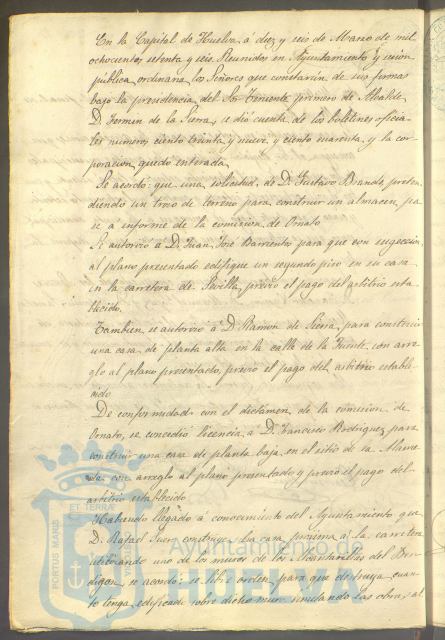 En la Capital de Huelva, á diez y seis de Marzo de mil
ochocientos setenta y seis. Reunidos en Ayuntamiento y sesion
publica ordinaria los Señores que constarán de sus firmas
bajo la presidencia del Sr. Teniente primero de Alcalde
D. Fermin de la Sierra, se dió cuenta de los boletines oficia-
les números ciento treinta y nueve y ciento cuarenta, y la cor-
poracion quedó enterada.
Se acordó: que una solicitud de D. Gustavo Brande, preten-
diendo un trozo de terreno para construir un almacen, pa-
se a informe de la comision de Ornato.
Se autorizó á D. Juan José Barrientos para que con sugecion
al plano presentado edifique un segundo piso en su casa
en la carretera de Sevilla, previo el pago del arbitrio esta-
blecido.
Tambien se autorizó á D. Ramon de Sierra, para construir
una casa de planta alta en la calle de la Fuente, con arre-
glo al plano presentado, previo el pago del arbitrio estable-
cido.
De conformidad con el dictamen de la comision de
Ornato, se concedió licencia á D. Francisco Rodriguez para
construir una casa de planta baja, en el sitio de la Alame-
da con arreglo al plano presentado y previo el pago del
arbitrio establecido.
Habiendo llegado á conocimiento del Ayuntamiento que
D. Rafael construye la casa proxima á la carretera
utilizando uno de los muros de las Alcantarillas del
se acordó: se libre orden para que destruya cuan-
to tenga edificado sobre dicho muro, las obras al
PORTUS MARIS
ET TERRAE
CUSTODIA
Ayuntamiento de
HUELVA